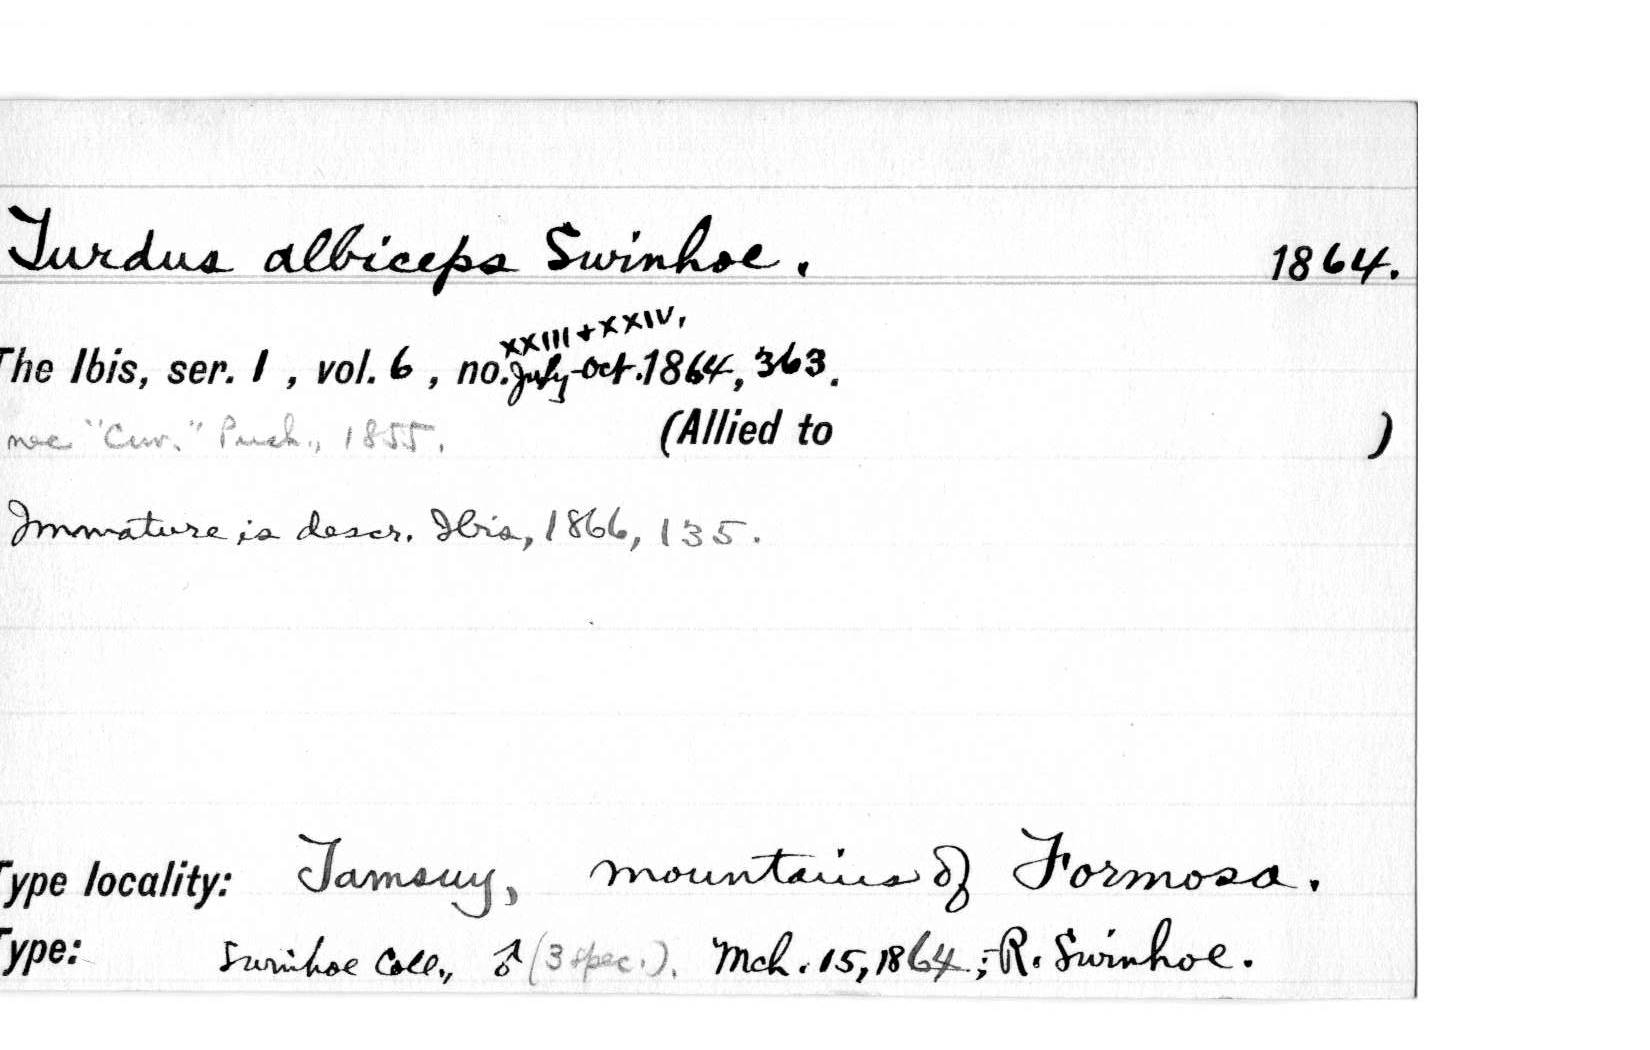 Turdus albiceps Swinhoe. 1864.
XXIII + XXIV,
The Ibis, ser. 1, vol. 6, no. July-Oct. 1864, 363.
nec "Cuv." Puch., 1855. (Allied to )
Immature is descr. Ibis, 1866, 135.
Type locality: Tamsuy, mountains of Formosa.
Type: Swinhoe Coll., ♂ (3 spec.). Mch. 15, 1864; R. Swinhoe.